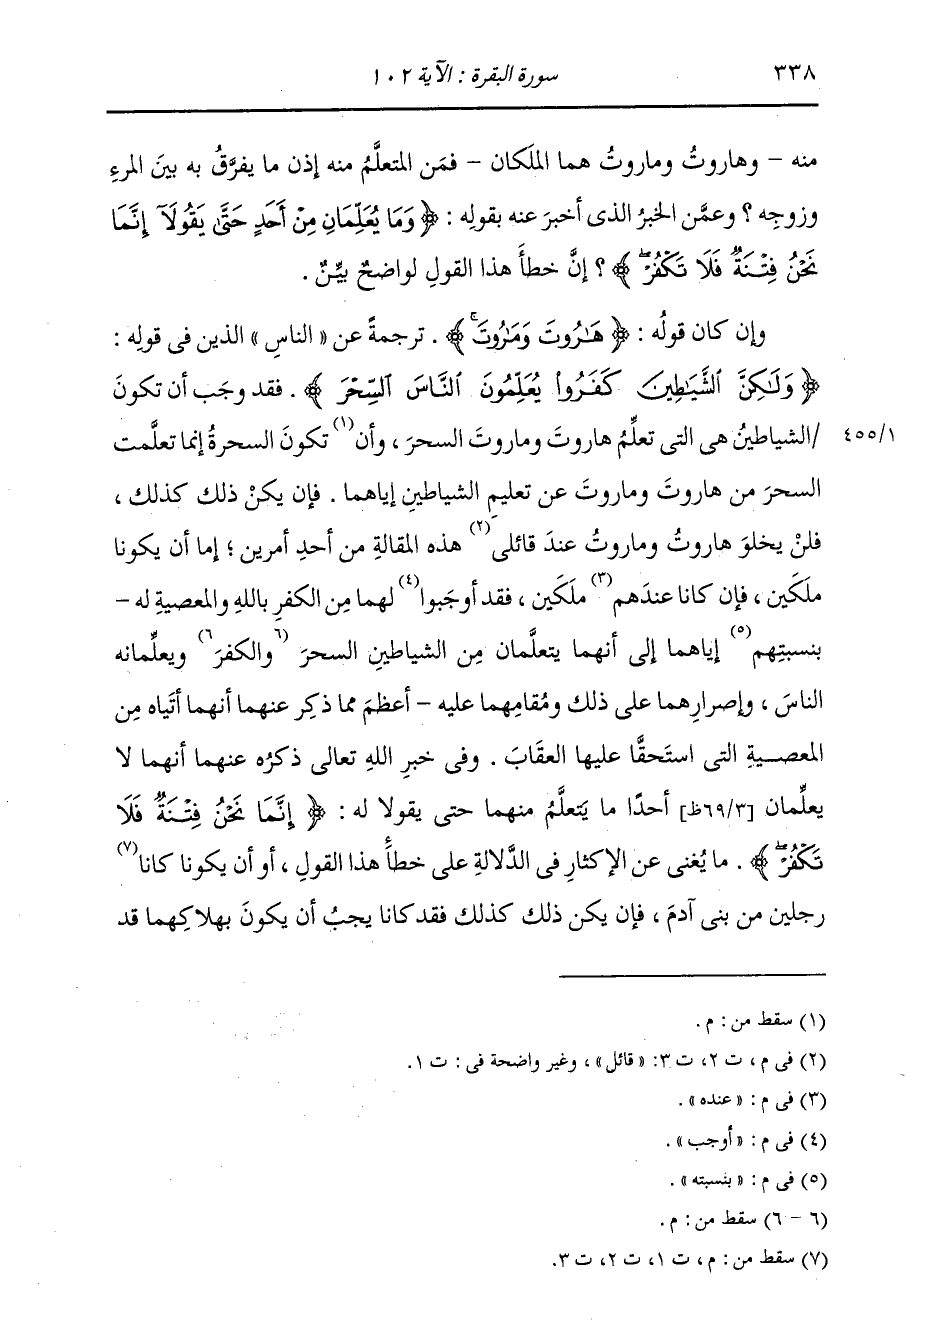 ٣٣٨ سورة البقرة : الآية ١٠٢
منه - وهاروتُ وماروتُ هما الملَكان - فمَن المتعلَّمُ منه إذن ما يفرَّقُ به بينَ المرءِ
وزوجِه ؟ وعمَّن الخبرُ الذى أخبرَ عنه بقولِه : ﴿ وَمَا يُعَلِّمَانِ مِنْ أَحَدٍ حَتَّىٰ يَقُولَآ إِنَّمَا
نَحْنُ فِتْنَةٌ فَلَا تَكْفُرْۖ ﴾ ؟ إنَّ خطأَ هذا القولِ لواضحٌ بيِّنٌ .
وإن كان قولُه : ﴿ هَٰرُوتَ وَمَٰرُوتَۚ ﴾ . ترجمةً عن « الناسِ » الذين فى قولِه :
﴿ وَلَٰكِنَّ ٱلشَّيَٰطِينَ كَفَرُوا۟ يُعَلِّمُونَ ٱلنَّاسَ ٱلسِّحْرَ ﴾ . فقد وجَب أن تكونَ
٤٥٥/١ /الشياطينُ هى التى تعلِّمُ هاروتَ وماروتَ السحرَ ، وأن(١) تكونَ السحرةُ إنما تعلَّمت
السحرَ من هاروتَ وماروتَ عن تعليمِ الشياطينِ إياهما . فإن يكنْ ذلك كذلك ،
فلنْ يخلوَ هاروتُ وماروتُ عندَ قائلى(٢) هذه المقالةِ من أحدِ أمرين ؛ إما أن يكونا
ملَكَين ، فإن كانا عندَهم(٣) ملَكَين ، فقد أوجَبوا(٤) لهما مِن الكفرِ باللهِ والمعصيةِ له -
بنسبتِهم(٥) إياهما إلى أنهما يتعلَّمان مِن الشياطينِ السحرَ (٦والكفرَ٦) ويعلِّمانه
الناسَ ، وإصرارِهما على ذلك ومُقامِهما عليه - أعظمَ مما ذكِر عنهما أنهما أتَياه مِن
المعصيةِ التى استَحقَّا عليها العقَابَ . وفى خبرِ اللهِ تعالى ذكرُه عنهما أنهما لا
يعلِّمان [٦٩/٣ظ] أحدًا ما يَتعلَّمُ منهما حتى يقولا له : ﴿ إِنَّمَا نَحْنُ فِتْنَةٌ فَلَا
تَكْفُرْۖ ﴾ . ما يُغنى عن الإكثارِ فى الدَّلالةِ على خطأَ هذا القولِ ، أو أن يكونا كانا(٧)
رجلين من بنى آدمَ ، فإن يكن ذلك كذلك فقد كانا يجبُ أن يكونَ بهلاكِهما قد
(١) سقط من : م .
(٢) فى م ، ت ٢، ت ٣: « قائل » ، وغير واضحة فى : ت ١.
(٣) فى م : « عنده » .
(٤) فى م : « أوجب » .
(٥) فى م : « بنسبته » .
(٦ - ٦) سقط من : م .
(٧) سقط من : م ، ت ١، ت ٢، ت ٣.